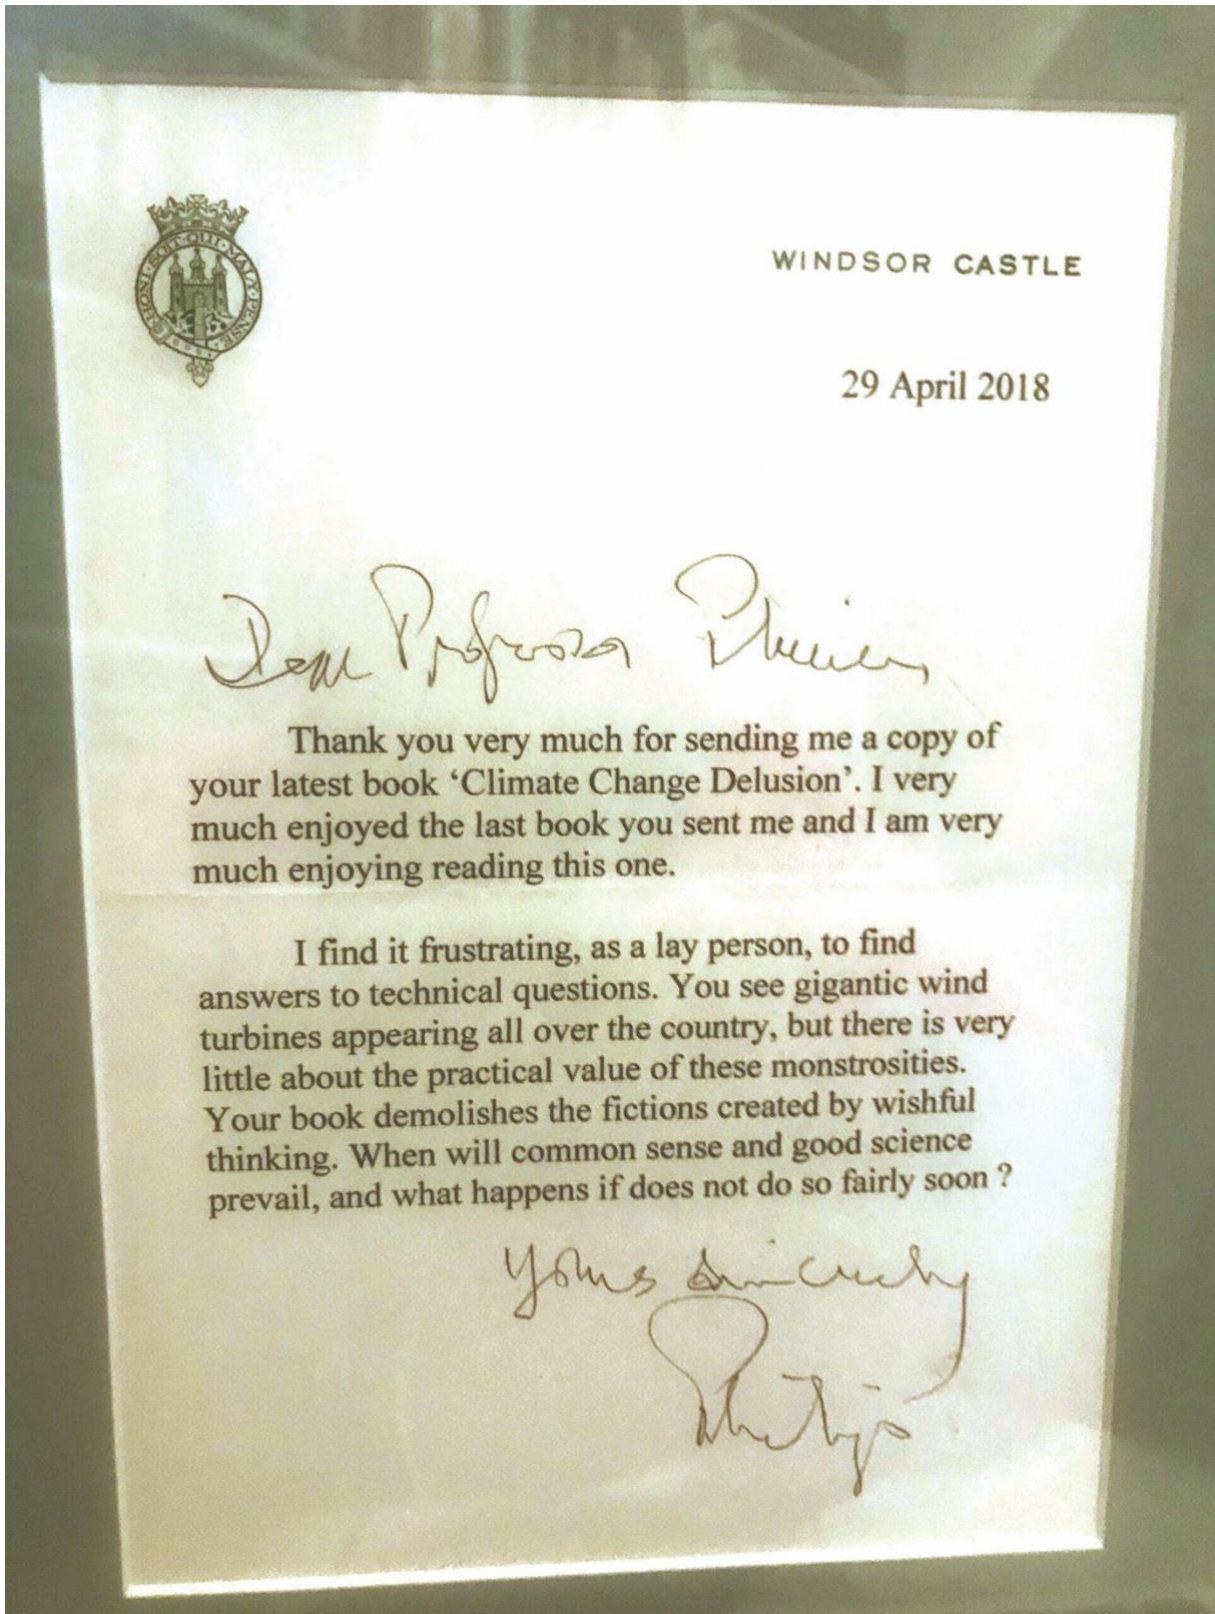 HONI·SOIT·QUI·MAL·Y·PENSE
WINDSOR CASTLE
29 April 2018
Dear Professor
Thank you very much for sending me a copy of
your latest book ‘Climate Change Delusion’. I very
much enjoyed the last book you sent me and I am very
much enjoying reading this one.
I find it frustrating, as a lay person, to find
answers to technical questions. You see gigantic wind
turbines appearing all over the country, but there is very
little about the practical value of these monstrosities.
Your book demolishes the fictions created by wishful
thinking. When will common sense and good science
prevail, and what happens if does not do so fairly soon ?
Yours sincerely
Philip